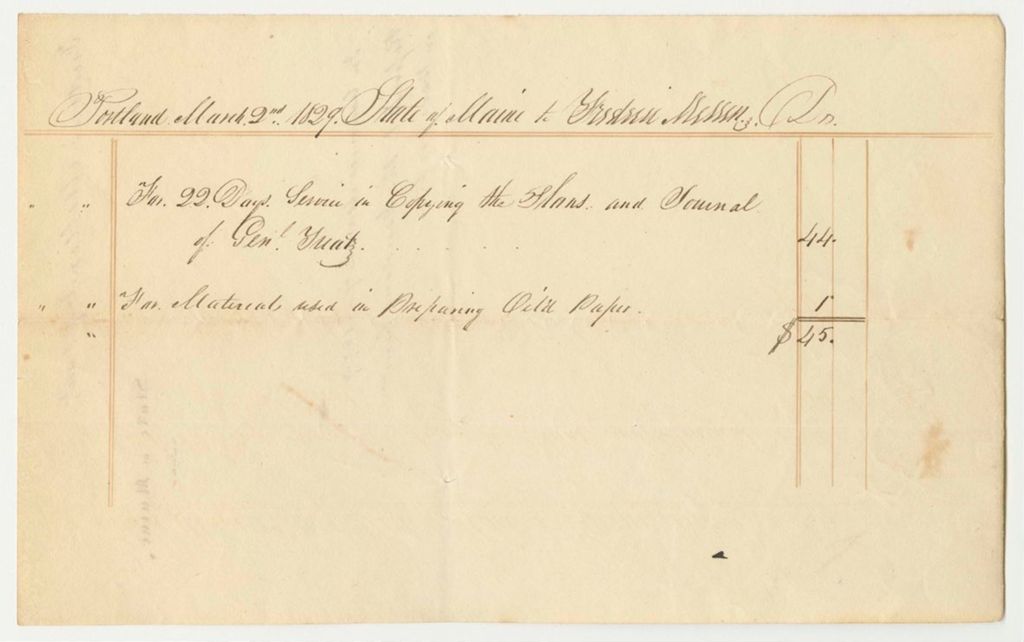 Portland March 2nd 1829. State of Maine to Frederic Mellen, Dr.
" " For 22 Days Service in Copying the Plans and Journal
of Genl Treat, . . . . . 44.
" " For Materials used in Preparing Oil'd Paper. 1
" $45.
State of Maine